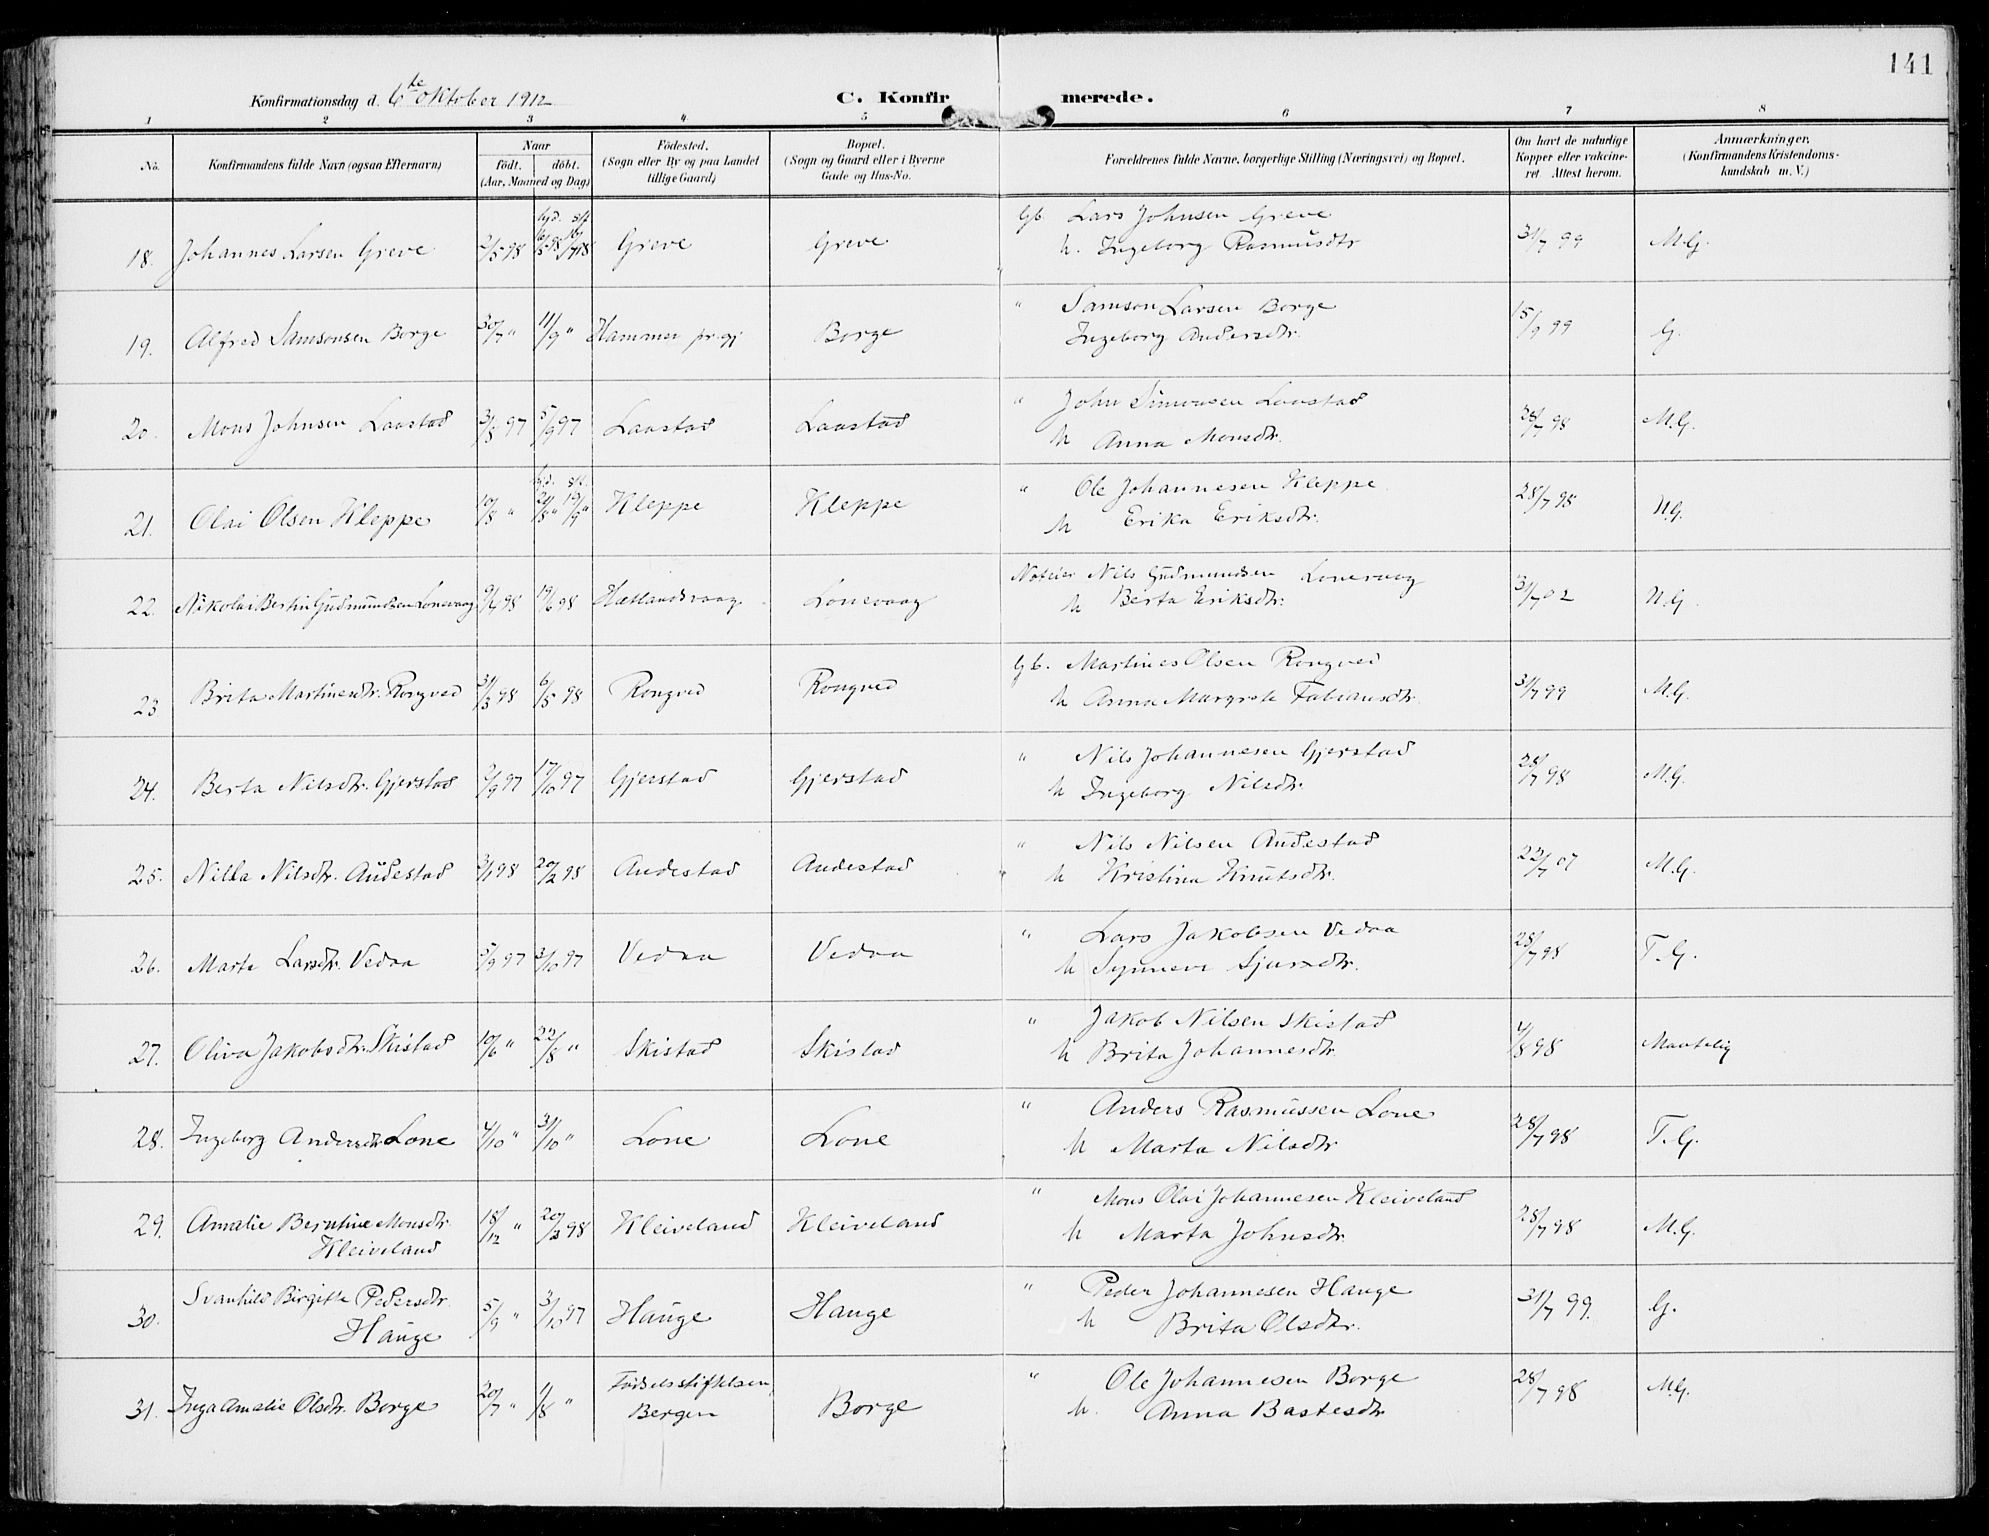 141
Konfirmationsdag d. 6te Oktober 1912 C. Konfirmerede.
1 2 3 4 5 6 7 8
No. Konfirmandens fulde Navn (ogsaa Efternavn) Naar født. døbt. (Aar, Maaned og Dag) Fødested. (Sogn eller By og paa Landet tillige Gaard) Bopæl. (Sogn og Gaard eller i Byerne Gade og Hus-No. Forældrenes fulde Navne, borgerlige Stilling (Næringsvei) og Bopæl. Om havt de naturlige Kopper eller vakcineret Attest herom. Anmærkninger. (Konfirmandens Kristendomskundskab m. V.)
18. Johannes Larsen Greve 2/5 98 hjd. 16/5 98 st. 10/7 98 Greve Greve Gb. Lars Johnsen Greve
h. Ingeborg Rasmusdtr 31/7 99 M.G.
19. Alfred Samsonsen Borge 30/7 " 11/9 " Hammer pr.gj Borge " Samson Larsen Borge
Ingeborg Andersdtr. 15/9 99 G.
20. Mons Johnsen Laastad 3/8 97 5/9 97 Laastad Laastad " John Simonsen Laastad
h Anna Monsdtr. 28/7 98 M.G.
21. Olai Olsen Kleppe 10/8 " hjd. 20/8 " st. 19/9 " Kleppe Kleppe " Ole Johannesen Kleppe
h Erika Eriksdtr. 28/7 98 N.G.
22. Nikolai Bertin Gudmundsen Lonevaag 9/4 98 19/6 98 Hætlandsvaag Lonevaag Noteier Nils Gudmundsen Lonevaag
h Berta Eriksdtr. 31/7 02 N.G.
23 Brita Martinesdtr. Rongved 31/3 98 6/5 98 Rongved Rongved Gb. Martines Olsen Rongved
h Anna Margrete Fabiansdtr. 31/7 99 M.G.
24. Berta Nilsdtr. Gjerstad 2/9 97 17/10 97 Gjerstad Gjerstad " Nils Johannesen Gjerstad
h Ingeborg Nilsdtr. 28/7 98 M.G.
25. Nilla Nilsdtr. Audestad 2/1 98 20/2 98 Audestad Audestad " Nils Nilsen Audestad
h Kristina Knutsdtr. 22/7 07 M.G.
26. Marta Larsdtr. Vedaa 5/9 97 3/10 97 Vedaa Vedaa " Lars Jakobsen Vedaa
h Synneve Sjursdtr. 28/7 98 T.G.
27. Oliva Jakobsdtr. Skistad 10/6 " 22/8 " Skistad Skistad " Jakob Nilsen Skistad
h Brita Johannesdtr. 4/8 98 Maatelig
28. Ingeborg Andersdtr Lone 4/10 " 31/10 " Lone Lone " Anders Rasmussen Lone
h Marta Nilsdtr 28/7 98 T.G.
29. Amalie Berntine Monsdtr.
Kleiveland 18/12 " 20/2 98 Kleiveland Kleiveland " Mons Olai Johannesen Kleiveland
h Marta Johnsdtr. 28/7 98 M.G.
30. Svanhild Birgitte Pedersdtr.
Hauge 5/9 " 3/10 97 Hauge Hauge " Peder Johannesen Hauge
h Brita Olsdtr. 31/7 99. G.
31. Inga Amalie Olsdtr. Borge 20/7 " 1/8 " Fødselsstiftelsen, Bergen Borge " Ole Johannesen Borge
h. Anna Bastesdtr 28/7 98 M.G.